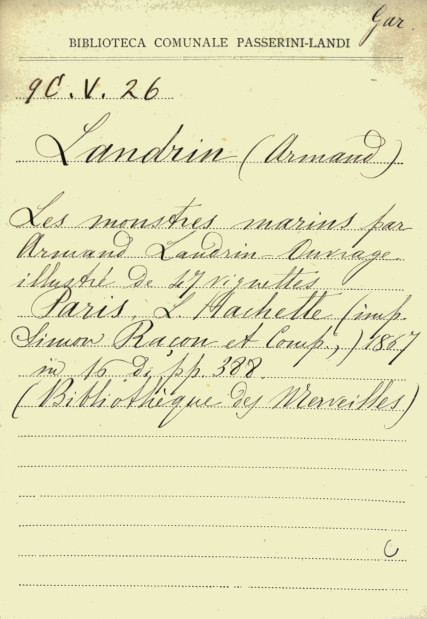 Gar.
BIBLIOTECA COMUNALE PASSERINI-LANDI
9C.V. 26
Landrin (Armand)
Les monstres marins par
Armand Landrin - Ouvrage
illustré de vignettes
Paris, L Hachette (imp.
Simon Raçon et Comp.,) 1867
in 16 di pp. 388.
(Bibliothèque des Merveilles)